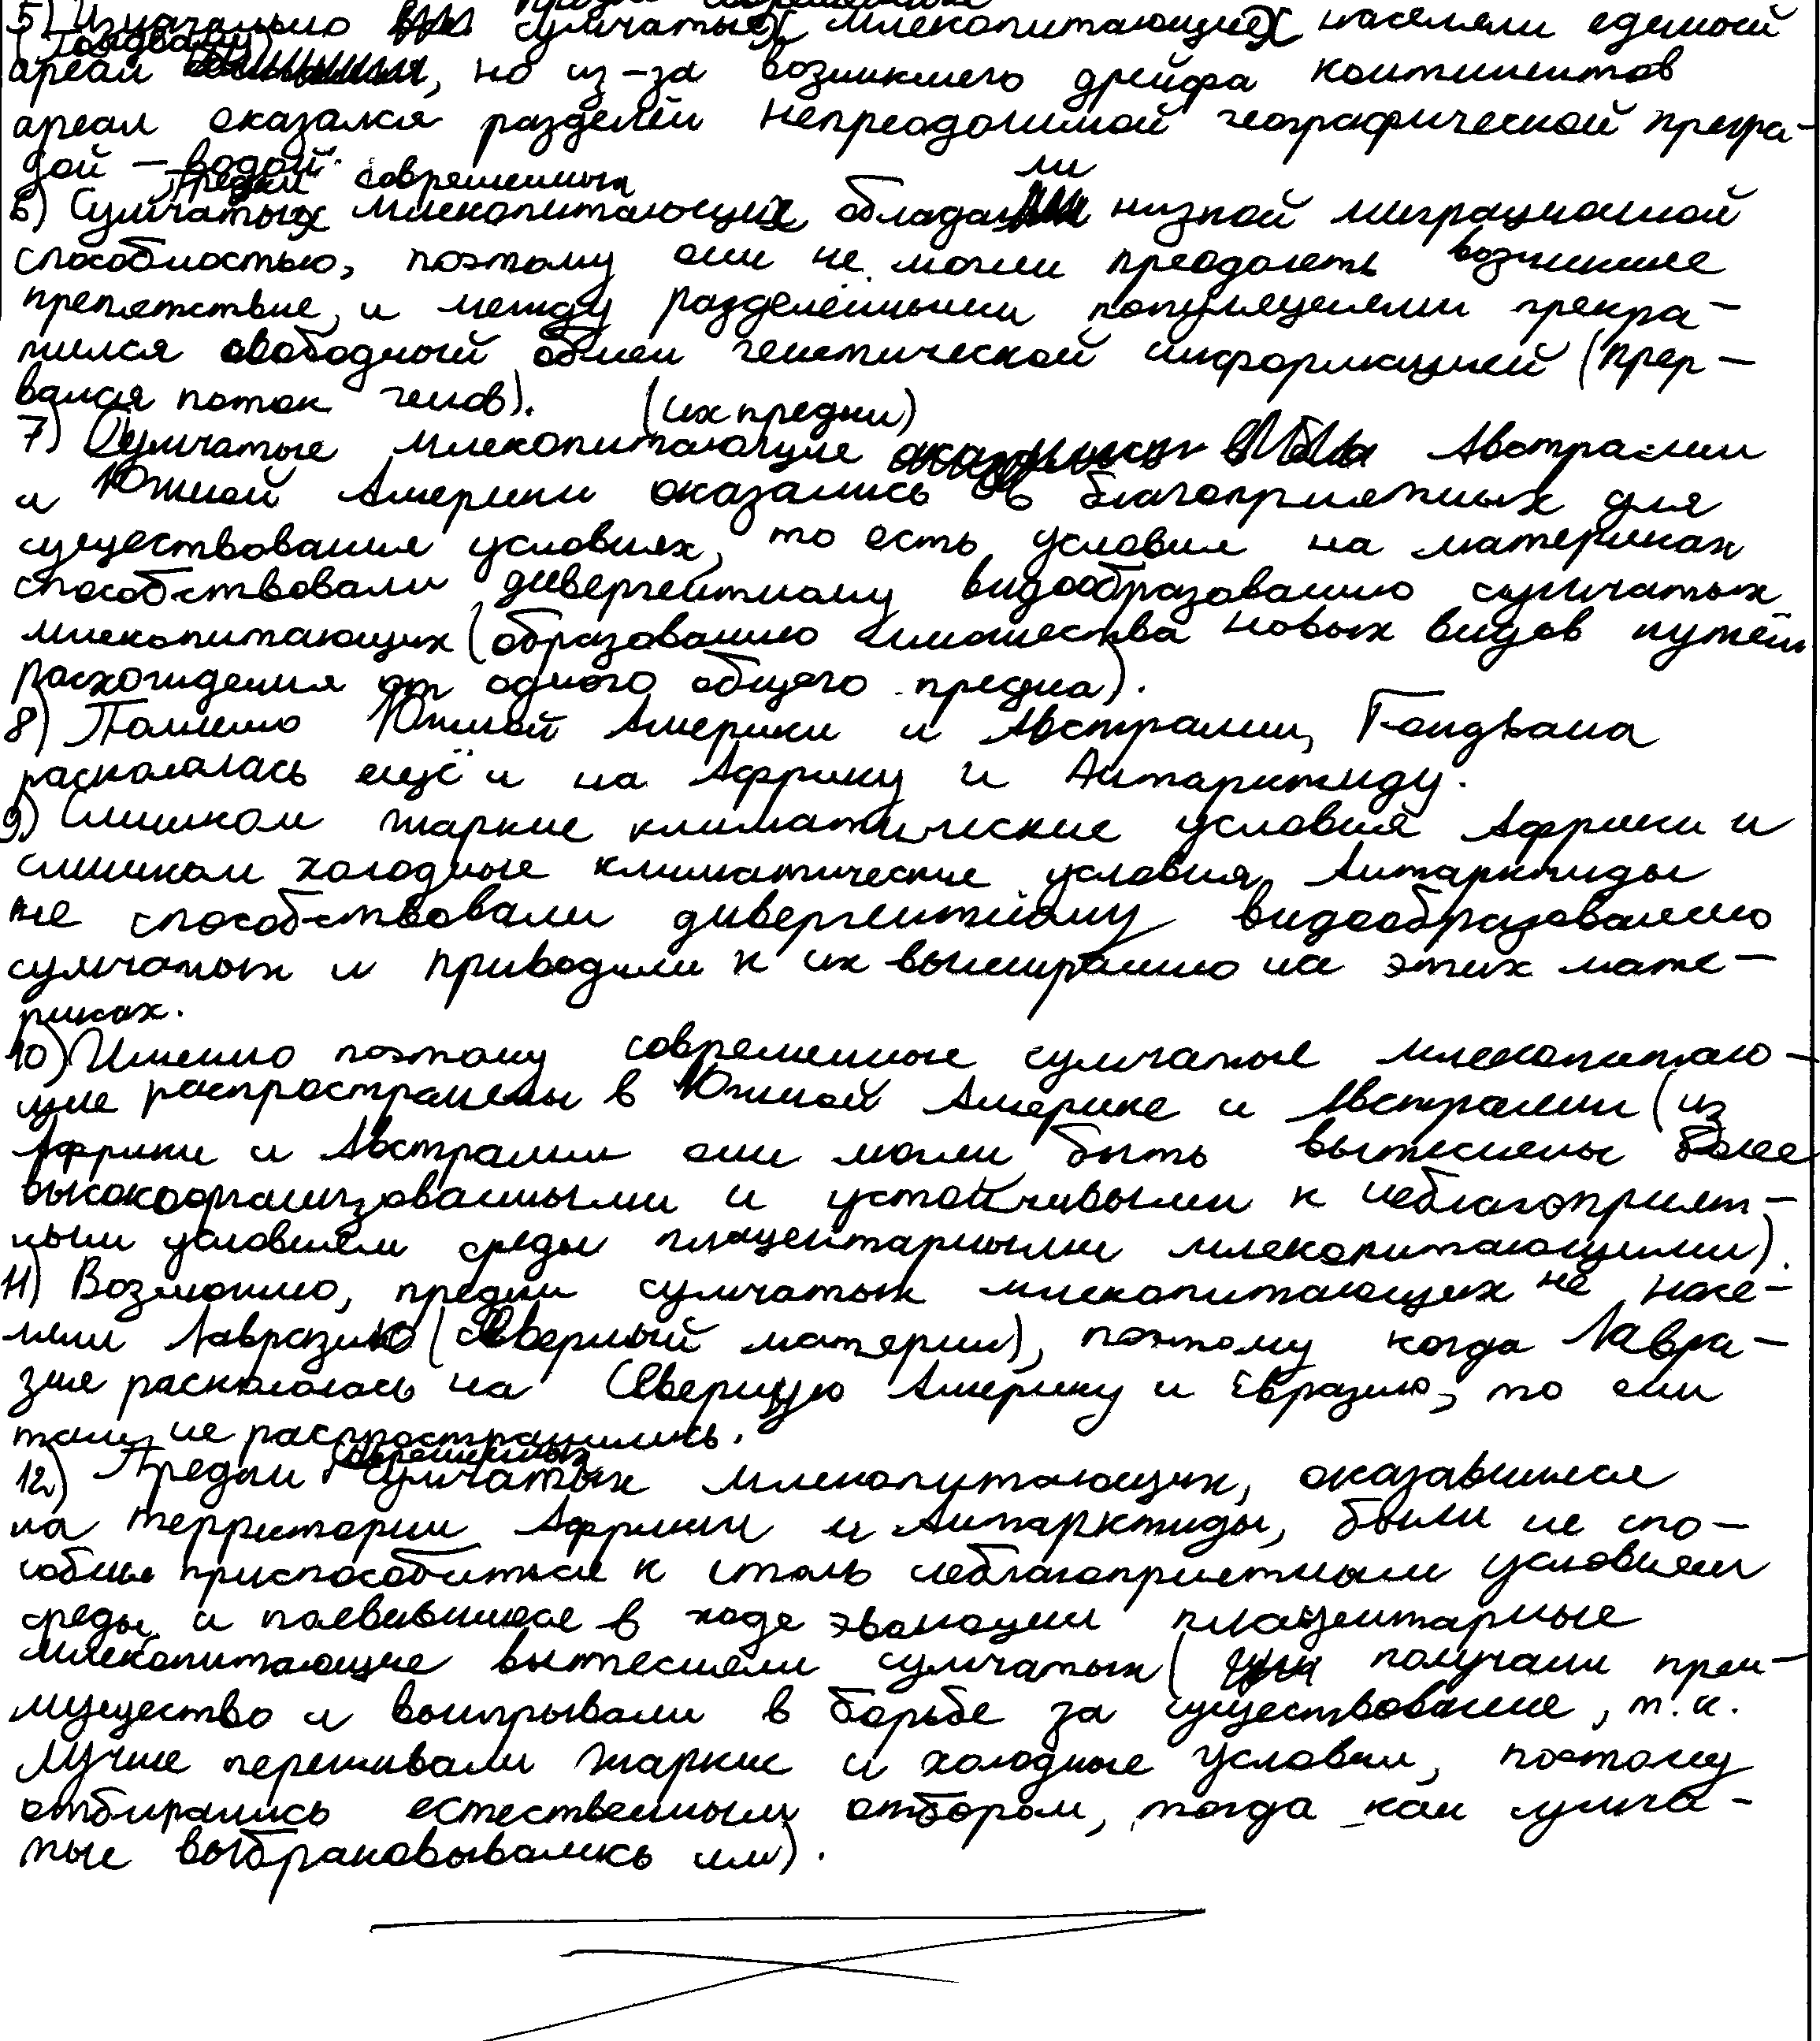 предки современных
5) Изначально сумчатых млекопитающих населяли единый
(Гондвану)
ареал, но из-за возникшего дрейфа континентов
ареал оказался разделён непреодолимой географической прегра-
дой - водой.
предки современных
ли
6) Сумчатых млекопитающих обладали низкой миграционной
способностью, поэтому они не могли преодолеть возникшее
препятствие, и между разделёнными популяциями прекра-
тился свободный обмен генетической информацией (прер-
вался поток генов).
(их предки)
7) Сумчатые млекопитающие Австралии
и Южной Америки оказались в благоприятных для
существования условиях, то есть условия на материках
способствовали дивергентному видообразованию сумчатых
млекопитающих (образованию множества новых видов путём
расхождения от одного общего предка).
8) Помимо Южной Америки и Австралии, Гондвана
раскололась ещё и на Африку и Антарктиду.
9) Слишком жаркие климатические условия Африки и
слишком холодные климатические условия Антарктиды
не способствовали дивергентному видообразованию
сумчатых и приводили к их вымиранию на этих мате-
риках.
10) Именно поэтому современные сумчатые млекопитаю-
щие распространены в Южной Америке и Австралии (из
Африки и Австралии они могли быть вытеснены более
высокоорганизованными и устойчивыми к неблагоприят-
ным условиям среды плацентарными млекопитающими).
11) Возможно, предки сумчатых млекопитающих не насе-
ляли Лавразию (северный материк), поэтому когда Лавра-
зия раскололась на Северную Америку и Евразию, то они
там не распространились.
современных
12) Предки сумчатых млекопитающих, оказавшиеся
на территории Африки и Антарктиды, были не спо-
собны приспособиться к столь неблагоприятным условиям
среды, и появившиеся в ходе эволюции плацентарные
млекопитающие вытесняли сумчатых ( получали преи-
мущество и выигрывали в борьбе за существование, т.к.
лучше переживали жаркие и холодные условия, поэтому
отбирались естественным отбором, тогда как сумча-
тые выбраковывались им).